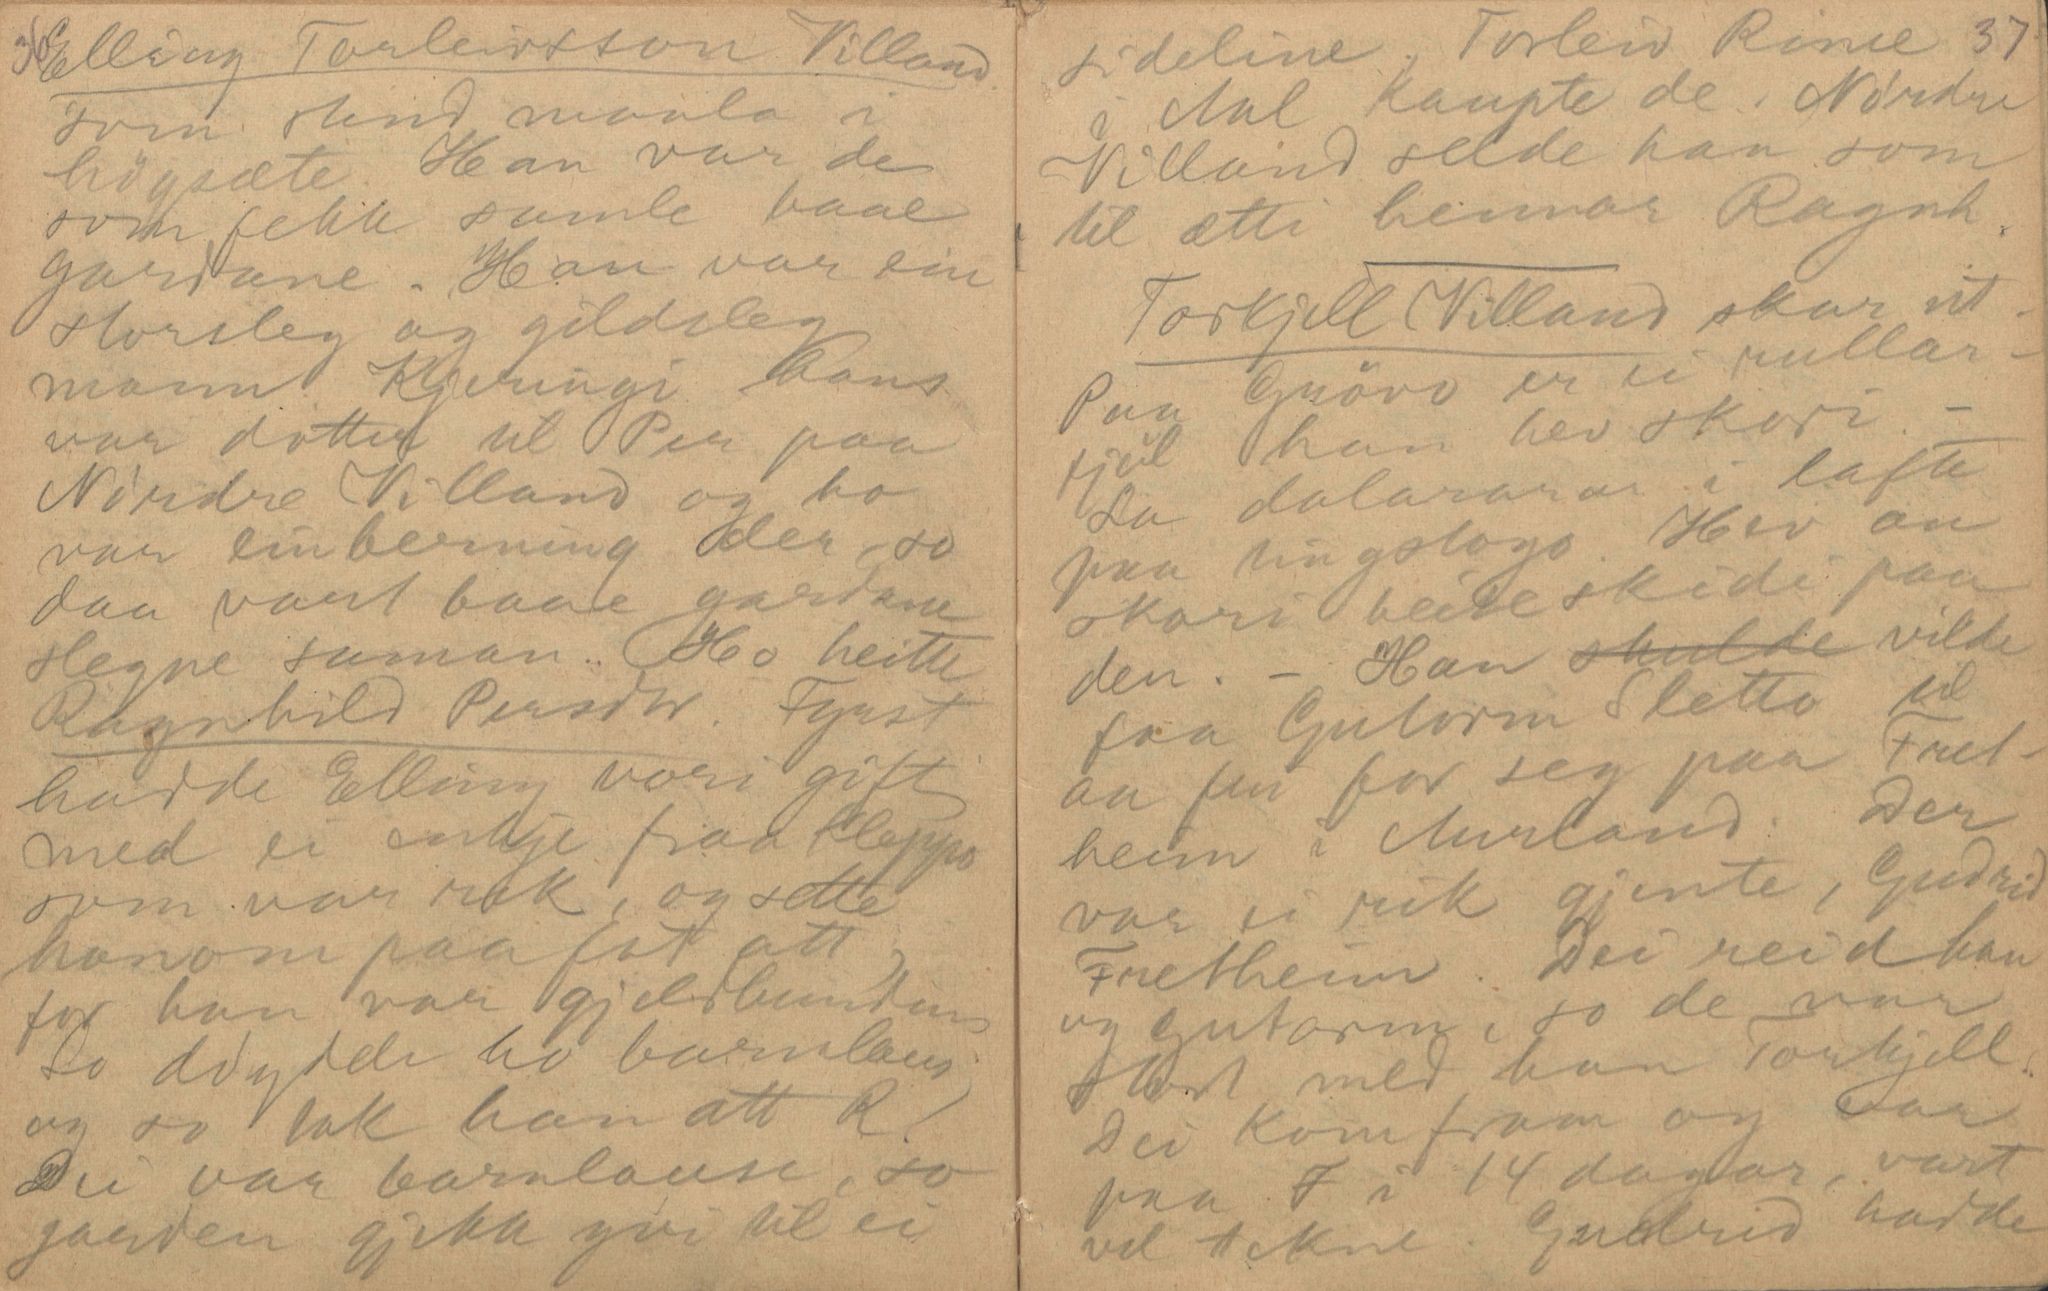 36
Elling Torleivsson Villand
som stend maala i
högsæte. Han var de
som fekk samle baae
gardane. Han var ein
storsleg og gildsleg
mann. Kjeringi hans
var dotter til Per paa
Nørdre Villand og ho
var einberning der, so
daa vart baae gardane
slegne saman. Ho heitte
Ragnhild Persdtr. Fyrst
hadde Elling vori gift
med ei enkje fraa Kleppo
som var rik, og sette
honom paa fot att,
for han var gjeldbunden
So døydde ho barnlaus,
og so tok han att R.
Dei var barnlause, so
garden gjekk yvi til ei
37
sideline. Torleiv Rime
i Aal kaupte de. Nørdre
Villand selde han som
til ætti hennar Ragnh.
Torkjell Villand skar ut.
Paa Grøvo er ei rullar-
fjøl han hev skori. -
La dalararar i lafte
paa tingstogo. Hev an
skori beiteskidi paa
den. - Han skulde vilde
faa Gutorm Sletto til
aa fri for seg paa Fret-
heim i Aurland. Der
var ei rik gjente, Gudrid
Fretheim. Dei reid han
og Gutorm, so de var
stort med han Torkjell.
Dei kom fram og var
paa F i 14 dagar, vart
vel tekne. Gudrid hadde